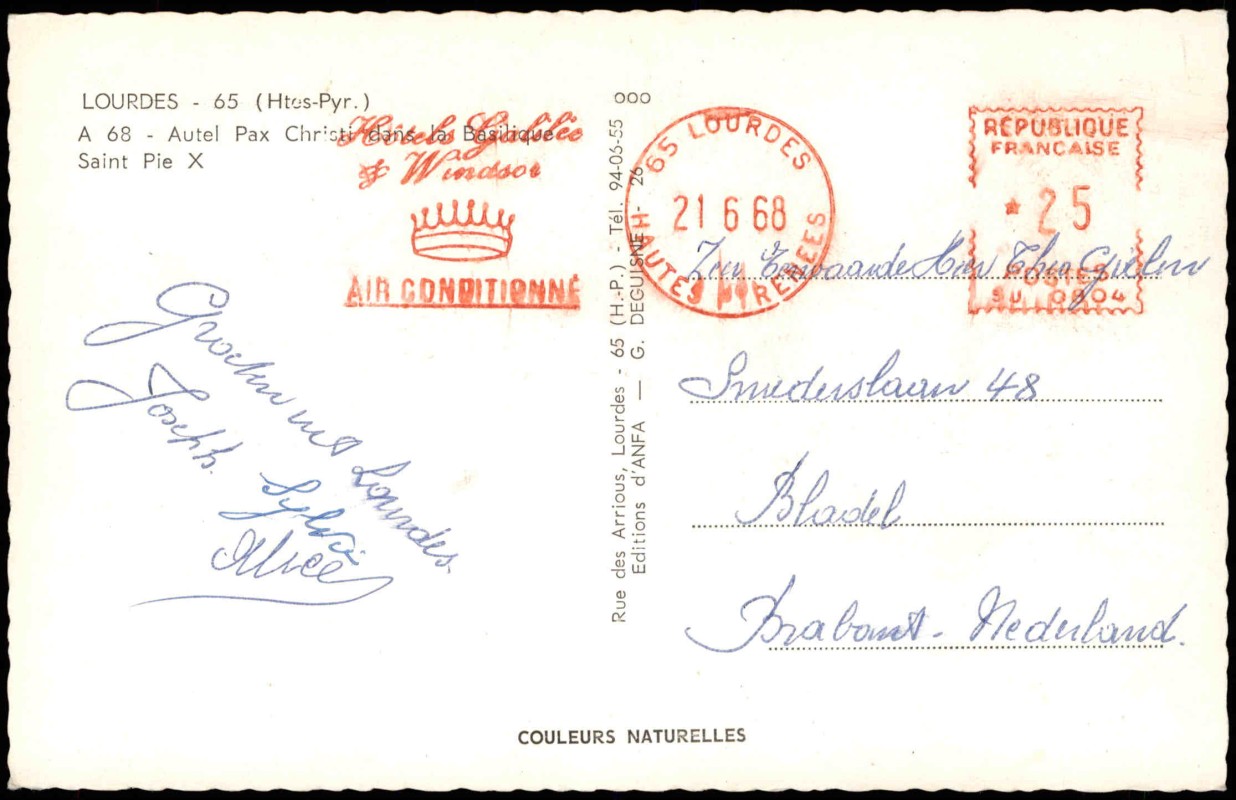 LOURDES - 65 (Htes-Pyr.)
A 68 - Autel Pax Christi dans la Basilique
Saint Pie X
Hôtels Galilée
& Windsor
AIR CONDITIONNÉ
Rue des Arrious, Lourdes - 65 (H.-P.) - Tél. 94-06-55
Editions d'ANFA — G. DEGUISNE - 26
000
65 LOURDES
21 6 68
HAUTES PYRENEES
RÉPUBLIQUE
FRANCAISE
* 25
POSTES
SU 0804
Zeer Eerwaarde Heer Theo Gielen
Smederslaan 48
Bladel
Brabant - Nederland.
Groeten uit Lourdes.
Joseph.
Sylvi
Alice
COULEURS NATURELLES